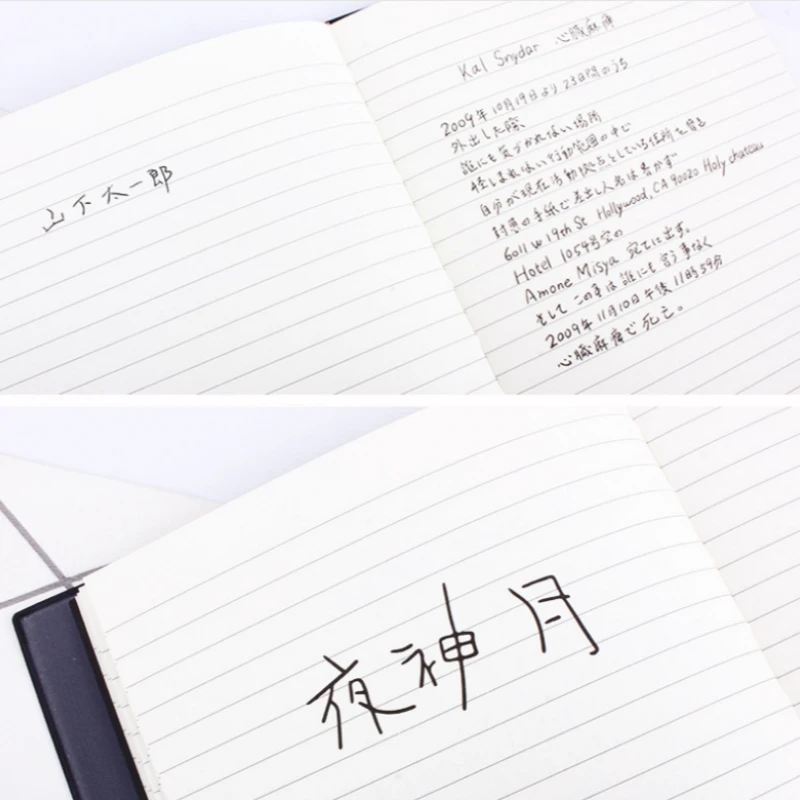 山下太一郎
Kal Snydar 心臓麻痺
2009年10月19日より 23日間のうち
外出した際
誰にも気づかれない場所
怪しまれない行動範囲の中で
自分が現在活動拠点としている住所を
封筒の手紙で差出し人名は書かず
6011 W 19th St Hollywood, CA 90020 Holy chateau
Hotel 1054号室の
Amone Misya 宛てに出す。
そして この事は誰にも言う事なく
2009年11月10日午後11時59分
心臓麻痺で死亡。
夜神月